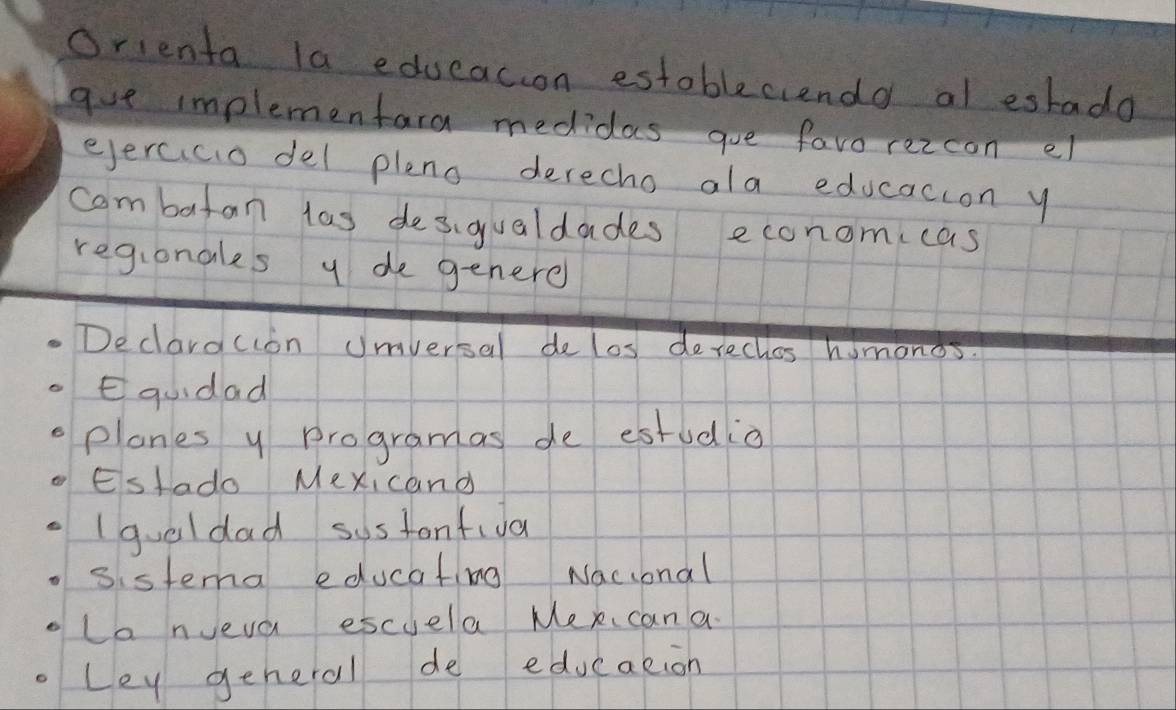 Orienta la educacion estableciendo al estado
que implementara medidas que favorezcan el
ejercicio del pleno derecho ala educacion y
combatan las desigualdades economicas
regionales y de genero
• Declaración Universal de los derechos humanos.
• Equidad
• planes y programas de estudio
• Estado Mexicano
• Igualdad sustantiva
• sistema educativo Nacional
• La nueva escuela Mexicana.
• Ley general de educación